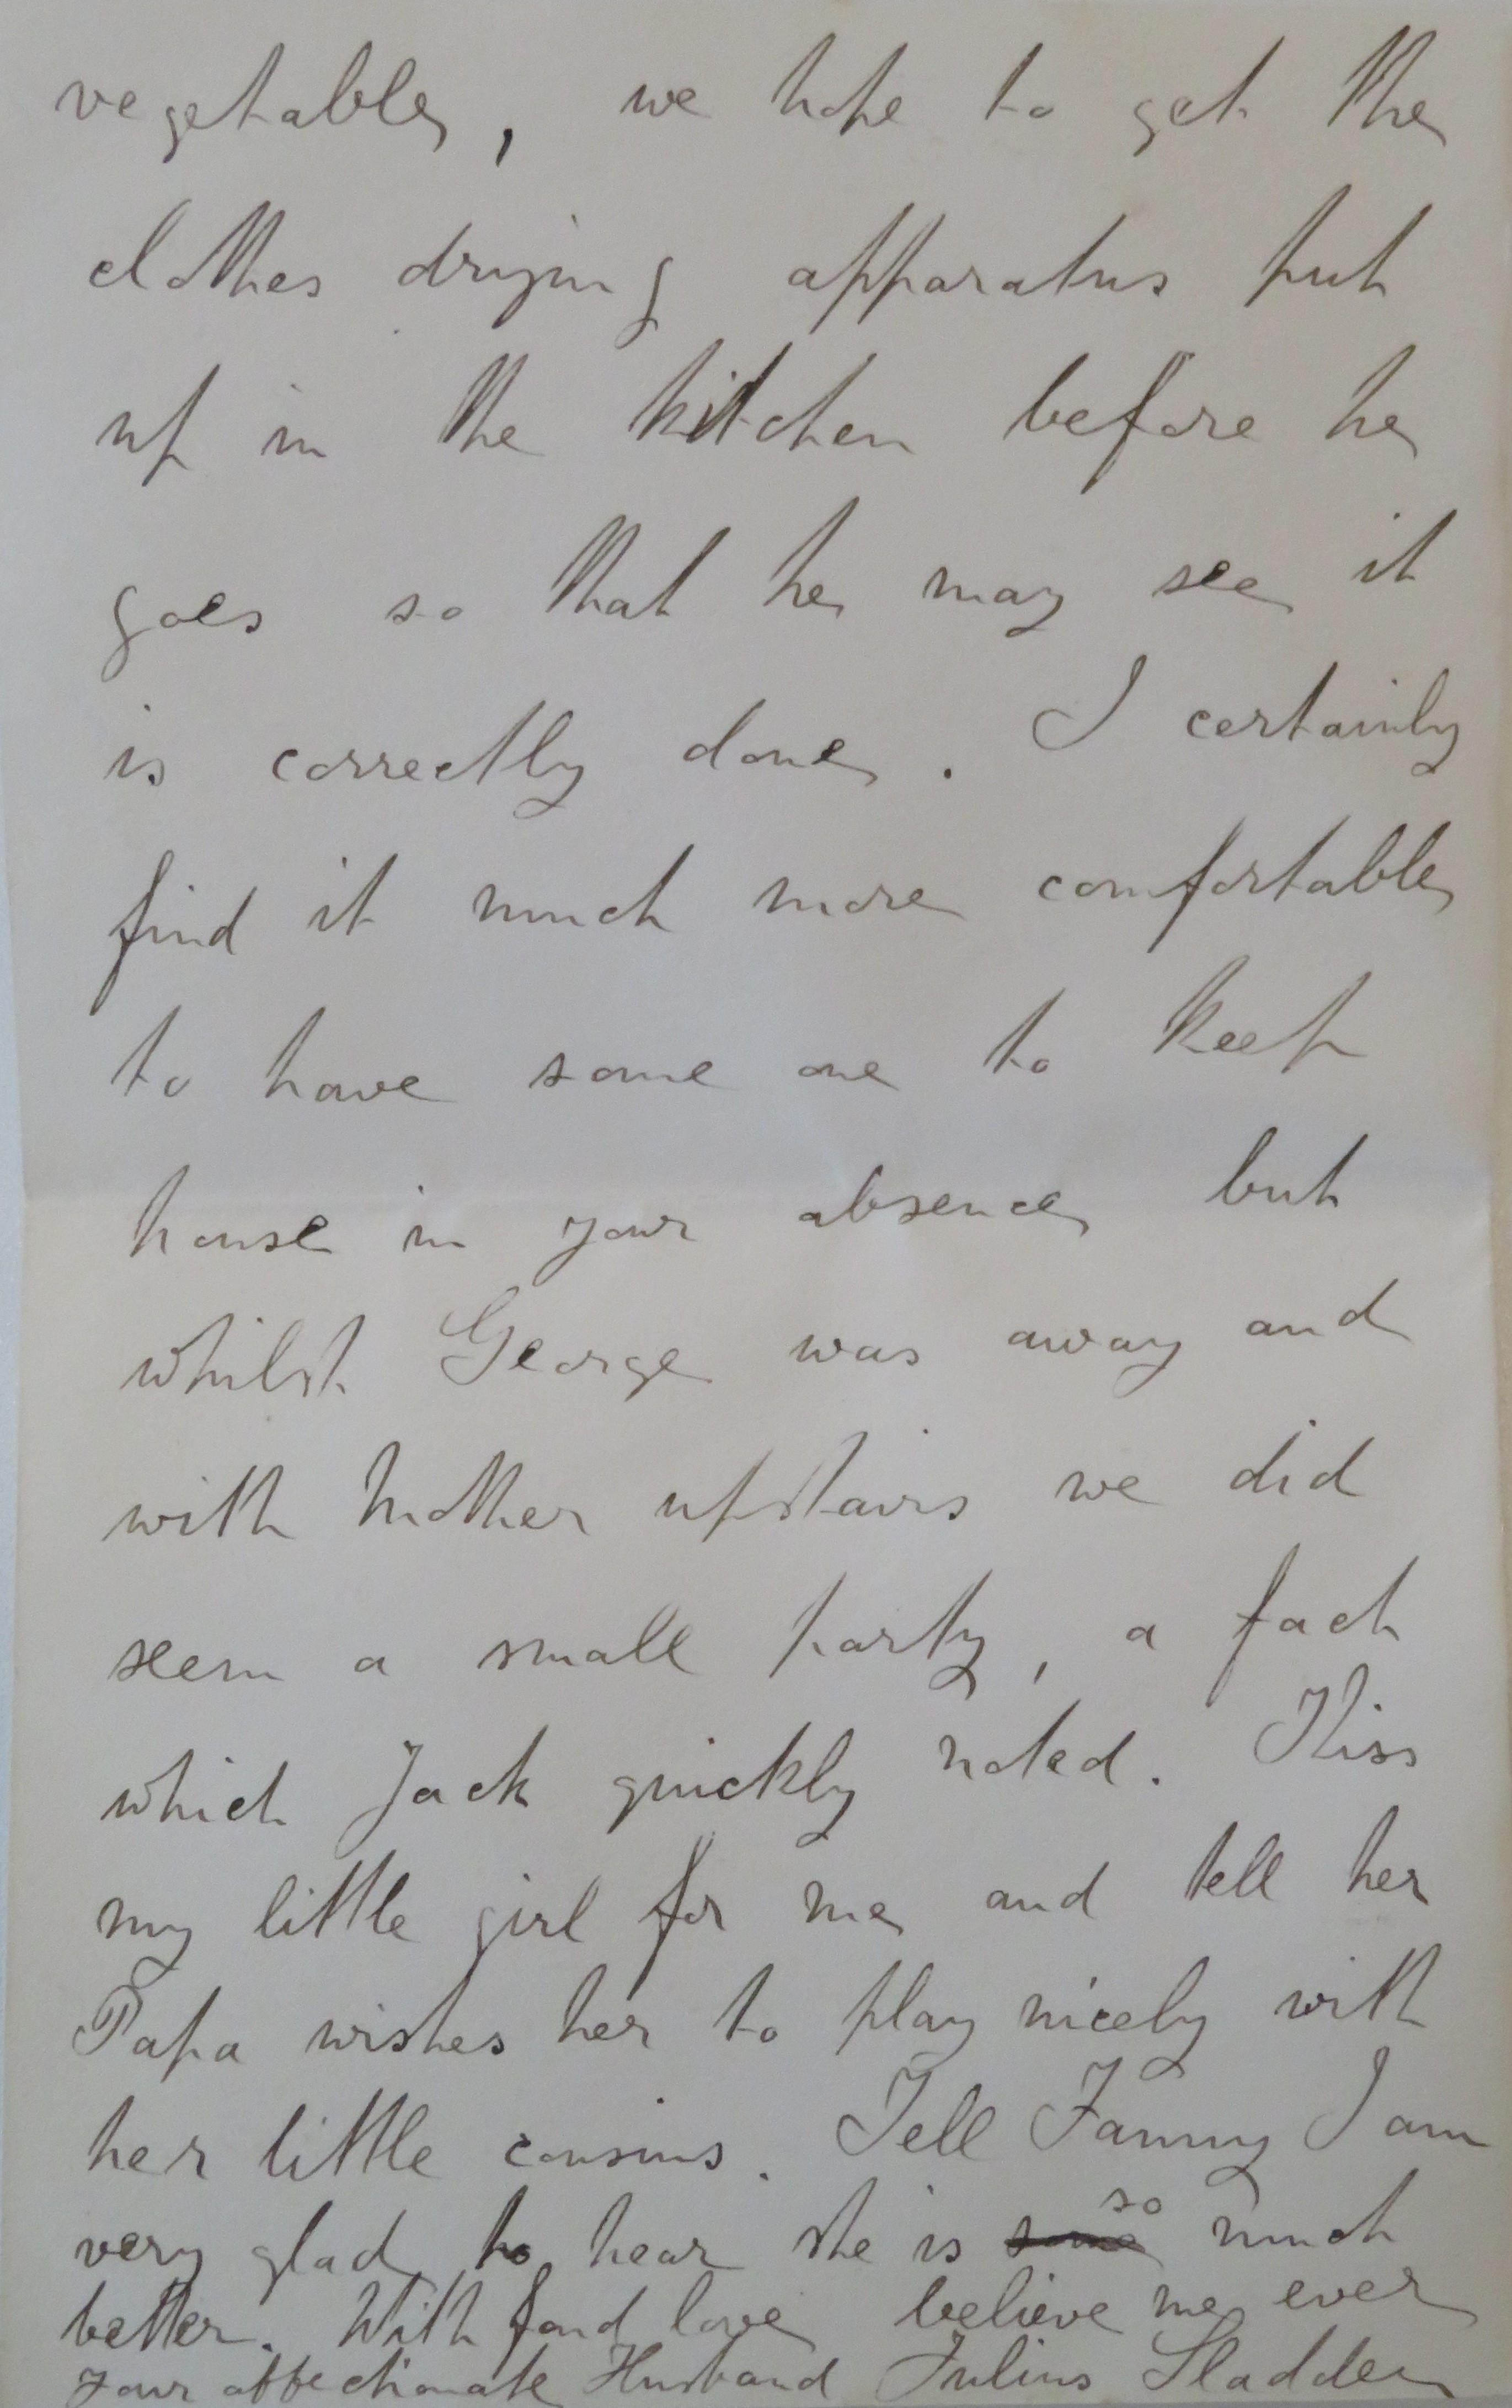 vegetables, we hope to get the
clothes drying apparatus put
up in the kitchen before he
goes so that he may see it
is correctly done. I certainly
find it much more comfortable
to have some one to keep
house in your absence but
whilst George was away and
with Mother upstairs we did
seem a small party, a fact
which Jack quickly noted. Kiss
my little girl for me and tell her
Papa wishes her to play nicely with
her little cousins. Tell Fanny I am
very glad to hear she is some so much
better. With fond love believe me ever
your affectionate Husband Julius Sladden